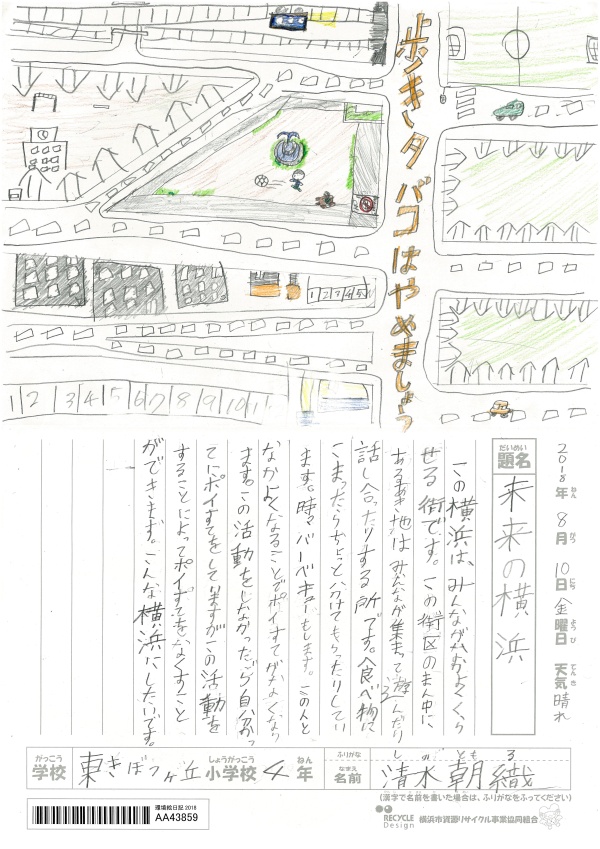 歩きタバコはやめましょう
1 2 3 4 5
1 2 3 4 5 6 7 8 9 10 1
2018年 8月 10日 金曜日 天気 晴れ
ねん がつ にち ようび てんき
だいめい
題名
未来の横浜
この横浜は、みんながなかよくくら
せる街です。この街区のまん中に
あるあき地はみんなが集まって遊んだりし
話し合ったりする所です。食べ物に
こまったらちょっと分けてもらったりしてい
ます。時々バーベキューもします。この人と
なかよくなることでポイすてがなくなり
ます。この活動をしなかったら自分かっ
てにポイすてをしていますがこの活動を
することによってポイすてをなくすこと
ができます。こんな横浜にしたいです。
がっこう
学校
東きぼうヶ丘
しょうがっこう
小学校
4
ねん
年
ふりがな
なまえ
名前
清水 朝織
(漢字で名前を書いた場合は、ふりがなをふってください)
環境絵日記 2018
AA43859
RECYCLE Design
横浜市資源リサイクル事業協同組合